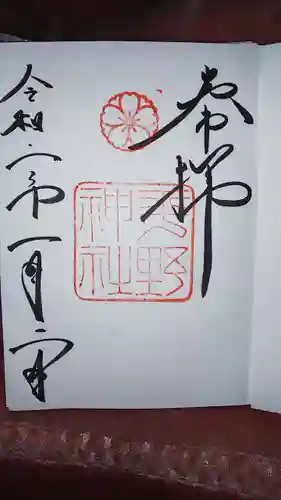 奉拝
野
神社
令和二年一月二日